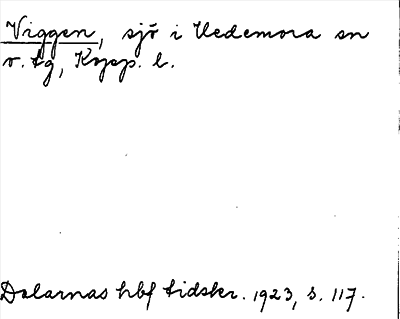 Viggen, sjö i Hedemora sn
v. tg, Kopp. l.
Dalarnas hbf tidskr. 1923, s. 117.